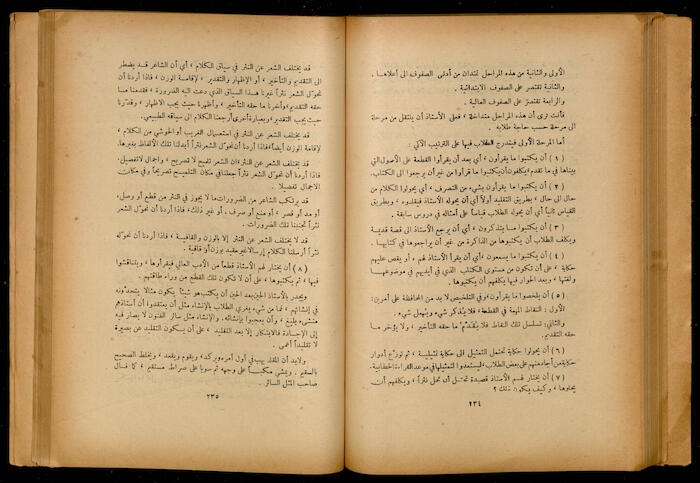 الأولى والثانية من هذه المراحل تمتدان من أدنى الصفوف الى أعلاها .
والثانية تقتصر على الصفوف الابتدائية .
والرابعة تقتصر على الصفوف العالية .
فأنت ترى أن هذه المراحل متداخلة ، فعلى الأستاذ أن ينتقل من مرحلة
الى مرحلة حسب حاجة طلابه .
أما المرحلة الأولى فيندرج الطلاب فيها على الترتيب الآتي :
( ١ ) أن يكتبوا ما يقرأون ، أي بعد أن يقرأوا القطعة على الأصول التي
بيناها في ما تقدم ، يكلفون أن يكتبوا ما قرأوا من غير أن يرجعوا الى الكتاب.
( ٢ ) أن يكتبوا ما يقرأون بشيء من التصرف ، أي يحولوا الكلام من
حال الى حال ، بطريق التقليد أولاً أي أن يحوله الأستاذ فيقلدوه ، وبطريق
القياس ثانياً أي أن يحوله الطلاب قياساً على أمثاله في دروس سابقة .
( ٣ ) أن يكتبوا ما يتذكرون ، أي أن يرجع الأستاذ الى قصة قديمة
ويكلف الطلاب أن يكتبوها من الذاكرة من غير أن يراجعوها في كتابها .
( ٤ ) أن يكتبوا ما يسمعون ، أي أن يقرأ الأستاذ لهم ، أو يقص عليهم
حكاية ، على أن تكون من مستوى الكتاب الذي في أيديهم في موضوعها
ولغتها ، وبعد الحوار فيها يكلفهم أن يكتبوها .
( ٥ ) أن يلخصوا ما يقرأون، وفي التلخيص لا بد من المحافظة على أمرين:
الأول : النقاط المهمة في القطعة، فلا يذكر شيء ويهمل شيء .
والثاني: تسلسل تلك النقاط فلا يقدم ما حقه التأخير ، ولا يؤخر ما
حقه التقديم.
( ٦ ) أن يحولوا حكاية تحتمل التمثيل الى حكاية تمثيلية . ثم توزع أدوار
حكاية من أجادهن على بعض الطلاب، فيستعدوا لتمثيلها في موعد القراءة الخطابية.
( ٧ ) أن يختار لهم الأستاذ قصيدة تحتمل أن تحل نثراً ، ويكلفهم أن
يحلوها ، وكيف يكون ذلك ؟
٢٣٤
قد يختلف الشعر عن النثر في سياق الكلام ، أي أن الشاعر قد يضطر
الى التقديم والتأخير ، أو الإظهار والتقدير ، لإقامة الوزن ، فاذا أردنا أن
نحول الشعر نثراً خيرنا هذا السياق الذي دعت اليه الضرورة ، فقدمنا ما
حقه التقديم، وأخرنا ما حقه التأخير ، وأظهرنا حيث يجب الاظهار ، وقدرنا
حيث يجب التقدير ، وبعبارة أخرى أرجعنا الكلام الى سياقه الطبيعي.
قد يختلف الشعر عن النثر في استعمال الغريب أو الحوشي من الكلام ،
لإقامة الوزن أيضاً، فاذا أردنا أن نحول الشعر نثراً أبدلنا تلك الألفاظ بغيرها.
قد يختلف الشعر عن النثر، أن الشعر تلميح لا تصريح ، واجمال لا تفصيل.
فاذا أردنا أن نحول الشعر نثراً جعلنا في مكان التلميح تصريحاً وفي مكان
الاجمال تفصيلا .
قد يرتكب الشاعر من الضرورات ما لا يجوز في النثر من قطع أو وصل،
أو مد أو قصر ، أو منع أو صرف . أو غير ذلك، فاذا أردنا أن نحول الشعر
نثراً تجنبنا تلك الضرورات .
قد لا يختلف الشعر عن النثر إلا بالوزن والقافية ، فاذا أردنا أن نحوله
نثراً أرسلنا الكلام إرسالا غير مقيد بوزن أو قافية .
( ٨ ) أن يختار لهم الأستاذ قطعاً من الأدب العالي فيقرأوها ، ويتناقشوا
فيها ، ثم يكتبوها ، على أن لا تكون تلك القطع من وراء طاقتهم .
ويجدر بالأستاذ الحين بعد الحين أن يكتب هو شيئاً يكون مثالا يتحدونه
في إنشائهم ، فما من شيء يغري الطلاب بالإنشاء مثل أن يعتقدوا أن أستاذهم
منشىء بليغ ، وأن يعجبوا بإنشائه . والإنشاء مثل سائر الفنون لا يصار فيه
إلى الإجادة فالابتكار إلا بعد التقليد ، على أن يكون التقليد عن بصيرة
لا تقليداً أعمى .
ولا بد أن المقلد يهب في أول أمره ويركد ، ويقوم ويقعد ، ويخلط الصحيح
بالسقيم . ويمشي مكباً على وجهه ثم سوياً على صراط مستقيم ، كما قال
صاحب المثل السائر .
٢٣٥